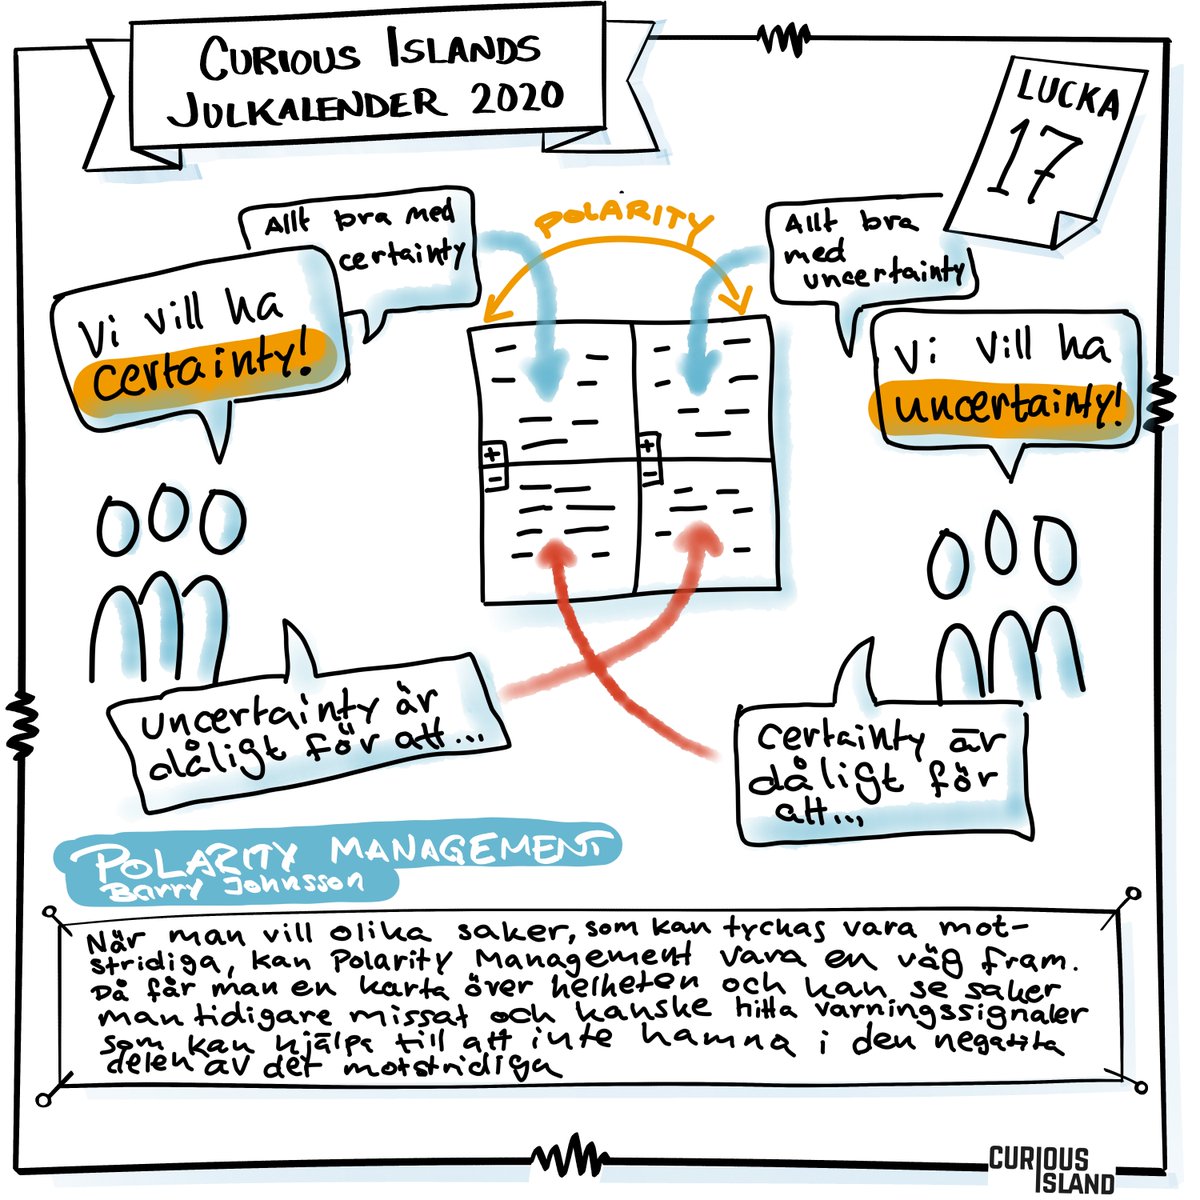 CURIOUS ISLANDS
JULKALENDER 2020
LUCKA
17
Allt bra med
certainty
Vi vill ha
certainty!
POLARITY
Allt bra
med
uncertainty
Vi vill ha
uncertainty!
+
-
+
-
uncertainty är
dåligt för att...
certainty är
dåligt för
att...
POLARITY MANAGEMENT
Barry Johnsson
När man vill olika saker, som kan tyckas vara mot-
stridiga, kan Polarity Management vara en väg fram.
Då får man en karta över helheten och kan se saker
man tidigare missat och kanske hitta varningssignaler
som kan hjälpa till att inte hamna i den negativa
delen av det motstridiga
CURIOUS
ISLAND